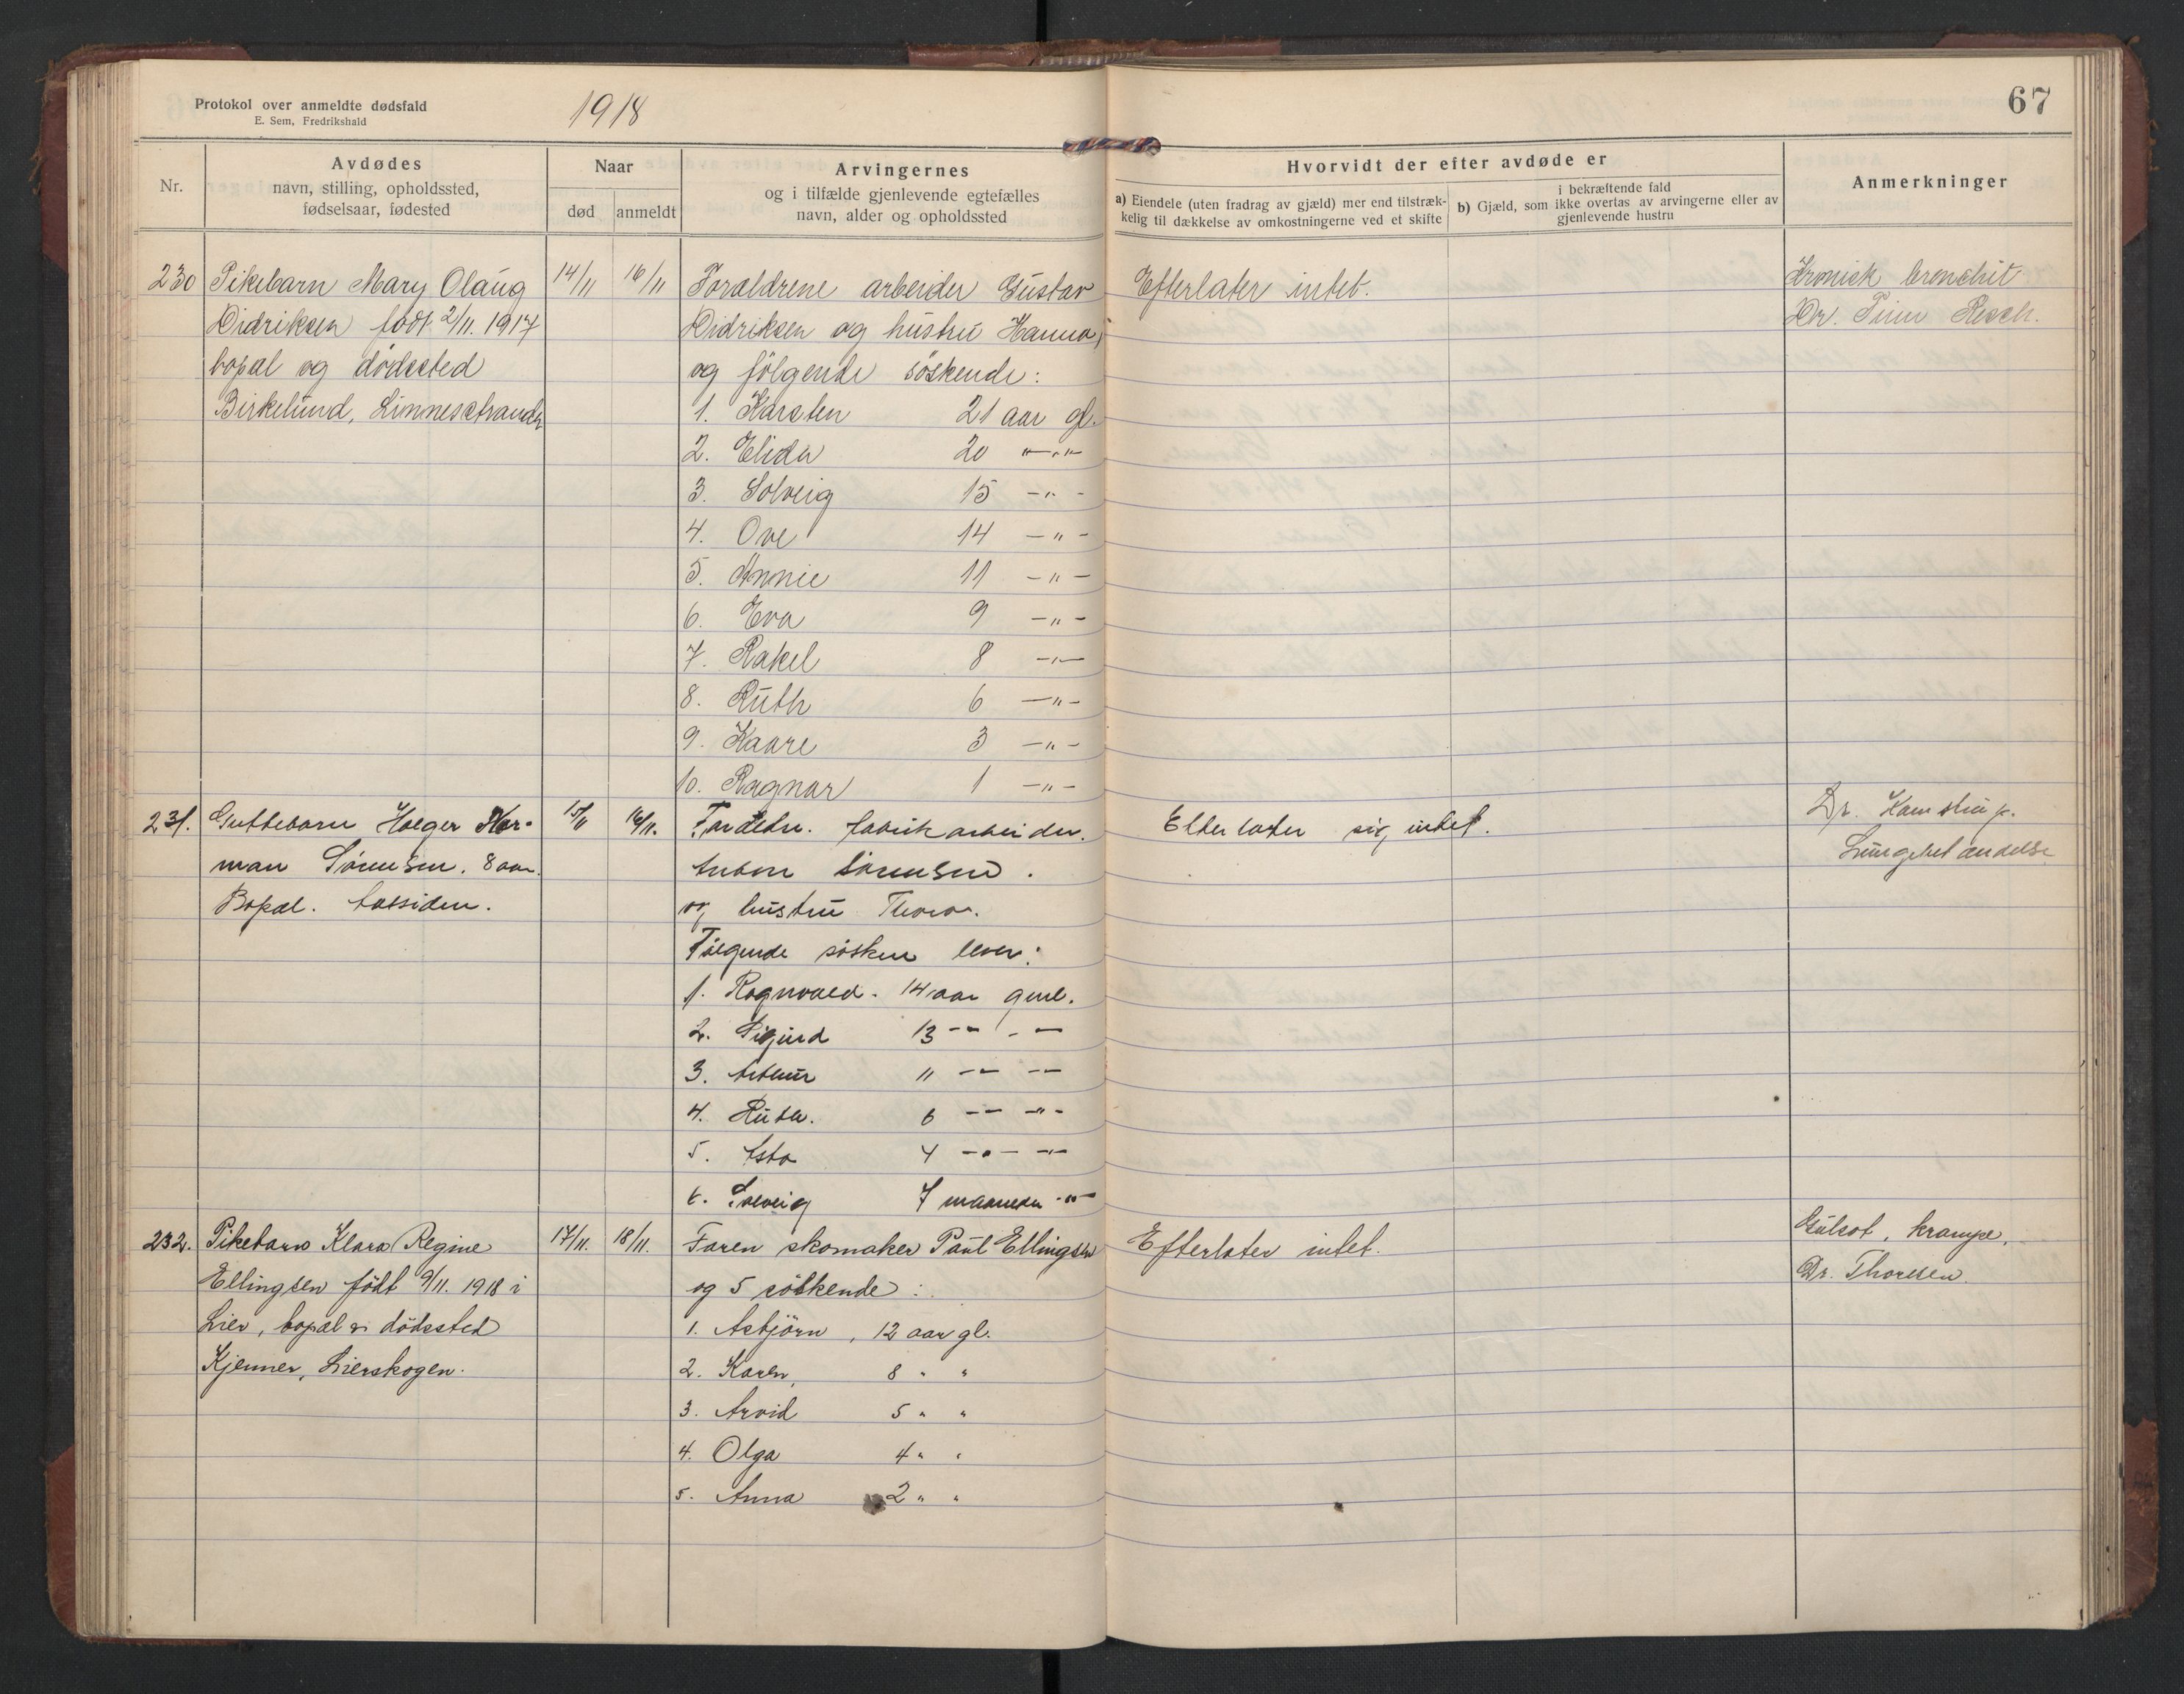 Protokol over anmeldte dødsfald
E. Sem, Fredrikshald
1918
67
Nr.
Avdødes
navn, stilling, opholdssted,
fødselsaar, fødested
Naar
død
anmeldt
Arvingernes
og i tilfælde gjenlevende egtefælles
navn, alder og opholdssted
Hvorvidt der efter avdøde er
a) Eiendele (uten fradrag av gjæld) mer end tilstræk-
kelig til dækkelse av omkostningerne ved et skifte
i bekræftende fald
b) Gjæld, som ikke overtas av arvingerne eller av
gjenlevende hustru
Anmerkninger
230
Pikebarn Mary Olaug
Didriksen født 2/11. 1917
bopæl og dødssted
Birkelund, Linnesstranda
14/11
16/11
Forældrene arbeider Gustav
Didriksen og hustru Hanna,
og følgende søskende:
1. Karsten 21 aar gl.
2. Elida 20 -"-"-
3. Solveig 15 -"-
4. Ove 14 -"-
5. Annie 11 -"-
6. Eva 9 -"-
7. Rakel 8 -"-
8. Ruth 6 -"-
9. Kaare 3 -"-
10. Ragnar 1 -"-
Efterlater intet.
Kronisk bronchit
Dr. Resch.
231.
Guttebarn Holger Her-
man Sörensen. 8 aar.
Bopæl. Tossiden.
15/11
16/11.
Forældre. fabrikarbeider.
Anton Sörensen.
og hustru Thora.
Følgende søsken lever:
1. Ragnvald. 14 aar gml.
2. Sigurd 13 -"- -"-
3. Arthur 11 -"- -"-
4. Ruth. 6 -"- -"-
5. Asta 4 -"- -"-
6. Solveig 7 maaneder -"-
Efterlater sig intet.
Dr. Kamstrup.
Lungebetændelse
232.
Pikebarn Klara Regine
Ellingsen født 9/11. 1918 i
Lier, bopæl og dødssted
Kjenner, Lierskogen.
17/11.
18/11.
Faren skomaker Paul Ellingsen
og 5 søskende:
1. Asbjörn, 12 aar gl.
2. Karen, 8 " "
3. Arvid 5 " "
4. Olga 4 " "
5. Anna 2 " "
Efterlater intet.
Gulsot, krampe.
Dr. Thoresen.